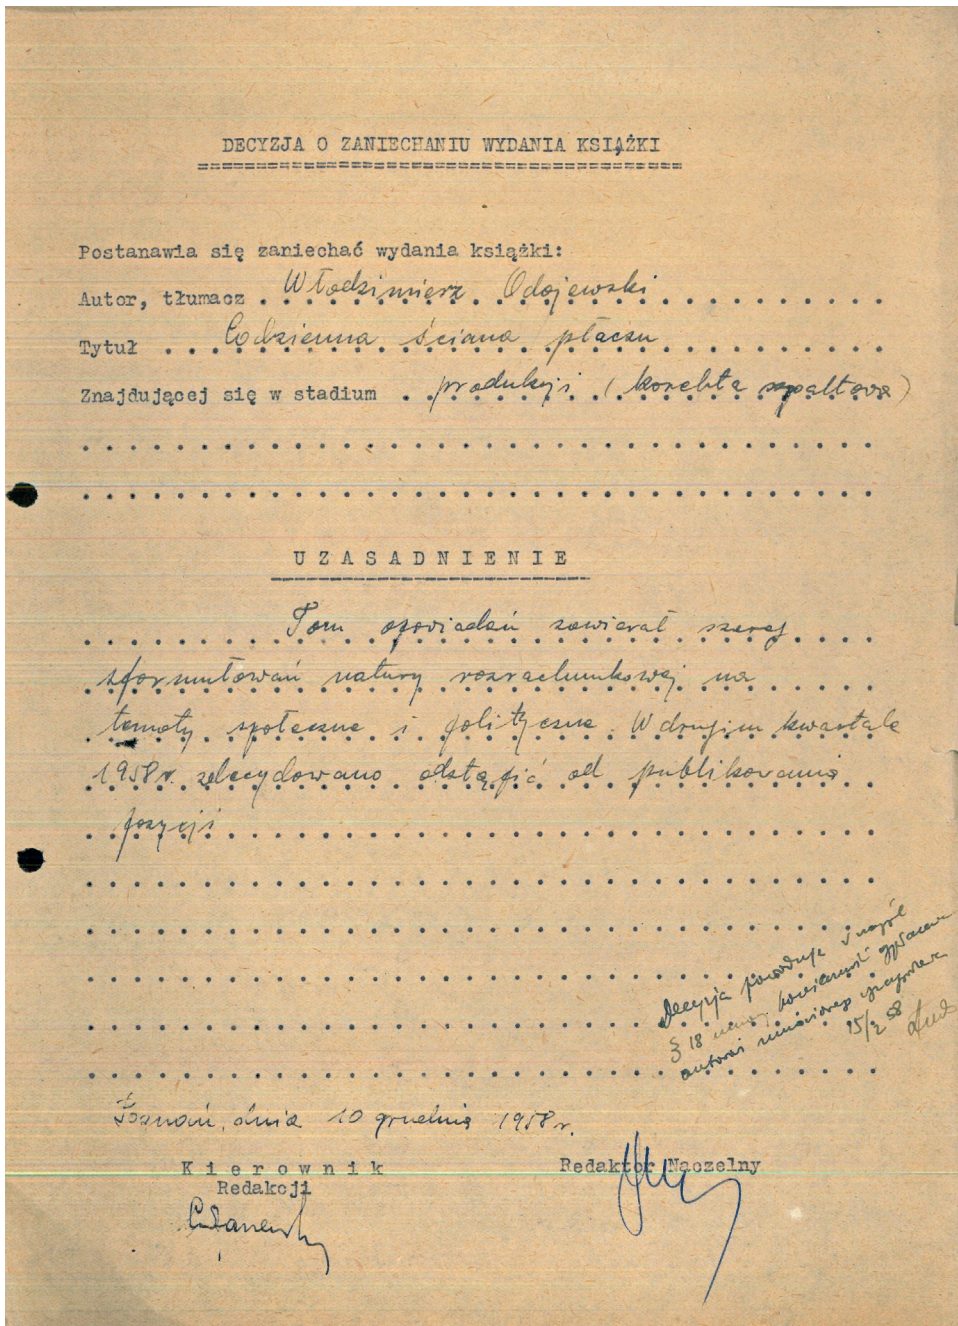 DECYZJA O ZANIECHANIU WYDANIA KSIĄŻKI
Postanawia się zaniechać wydania książki:
Autor, tłumacz Włodzimierz Odojewski
Tytuł Codzienna ściana płaczu
Znajdującej się w stadium produkcji (korekta szpaltowa)
UZASADNIENIE
Tom opowiadań zawierał szereg
sformułowań natury rozrachunkowej na
tematy społeczne i polityczne. W drugim kwartale
1958 r. zdecydowano odstąpić od publikowania
pozycji
Decyzja powoduje w myśl
§ 18 umowy konieczność
autorowi
Poznań, dnia 10 grudnia 1958 r.
Kierownik
Redakcji
Redaktor Naczelny